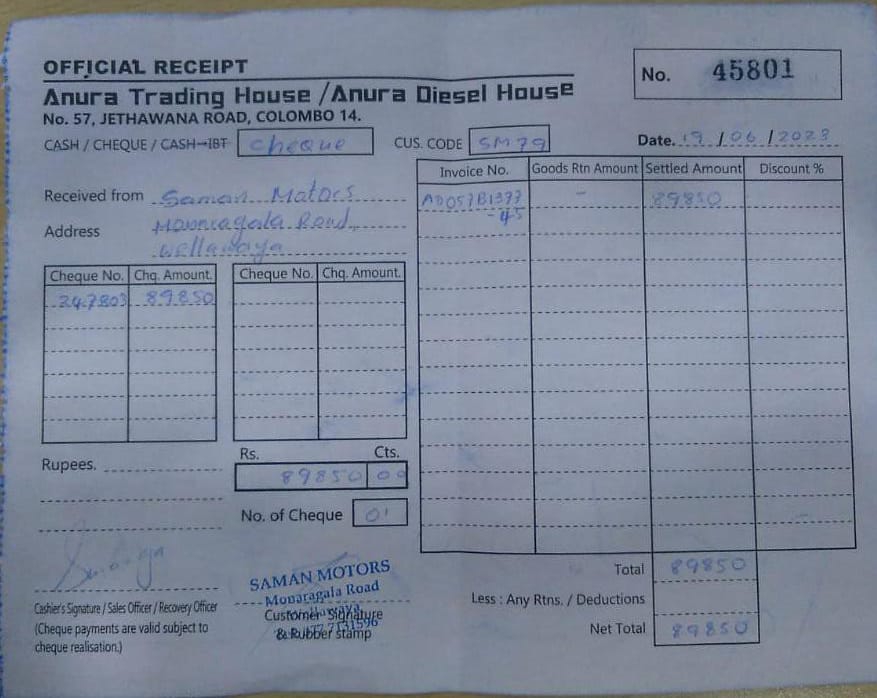 OFFICIAL RECEIPT
No. 45801
Anura Trading House / Anura Diesel House
No. 57, JETHAWANA ROAD, COLOMBO 14.
CASH / CHEQUE / CASH→IBT Cheque CUS. CODE SM79 Date. 19 / 06 / 2023
Invoice No. Goods Rtn Amount Settled Amount Discount %
Received from Saman Motors
AD057B1377 - 89850
-45
Address Monragala Road,
Wellawaya
Cheque No. Chq. Amount. Cheque No. Chq. Amount.
247803 89850
Rupees.
Rs. Cts.
89850 00
No. of Cheque 01
Total 89850
Less : Any Rtns. / Deductions
Net Total 89850
Cashier's Signature / Sales Officer / Recovery Officer
(Cheque payments are valid subject to
cheque realisation.)
SAMAN MOTORS
Monaragala Road
Customer Signature
& Rubber stamp